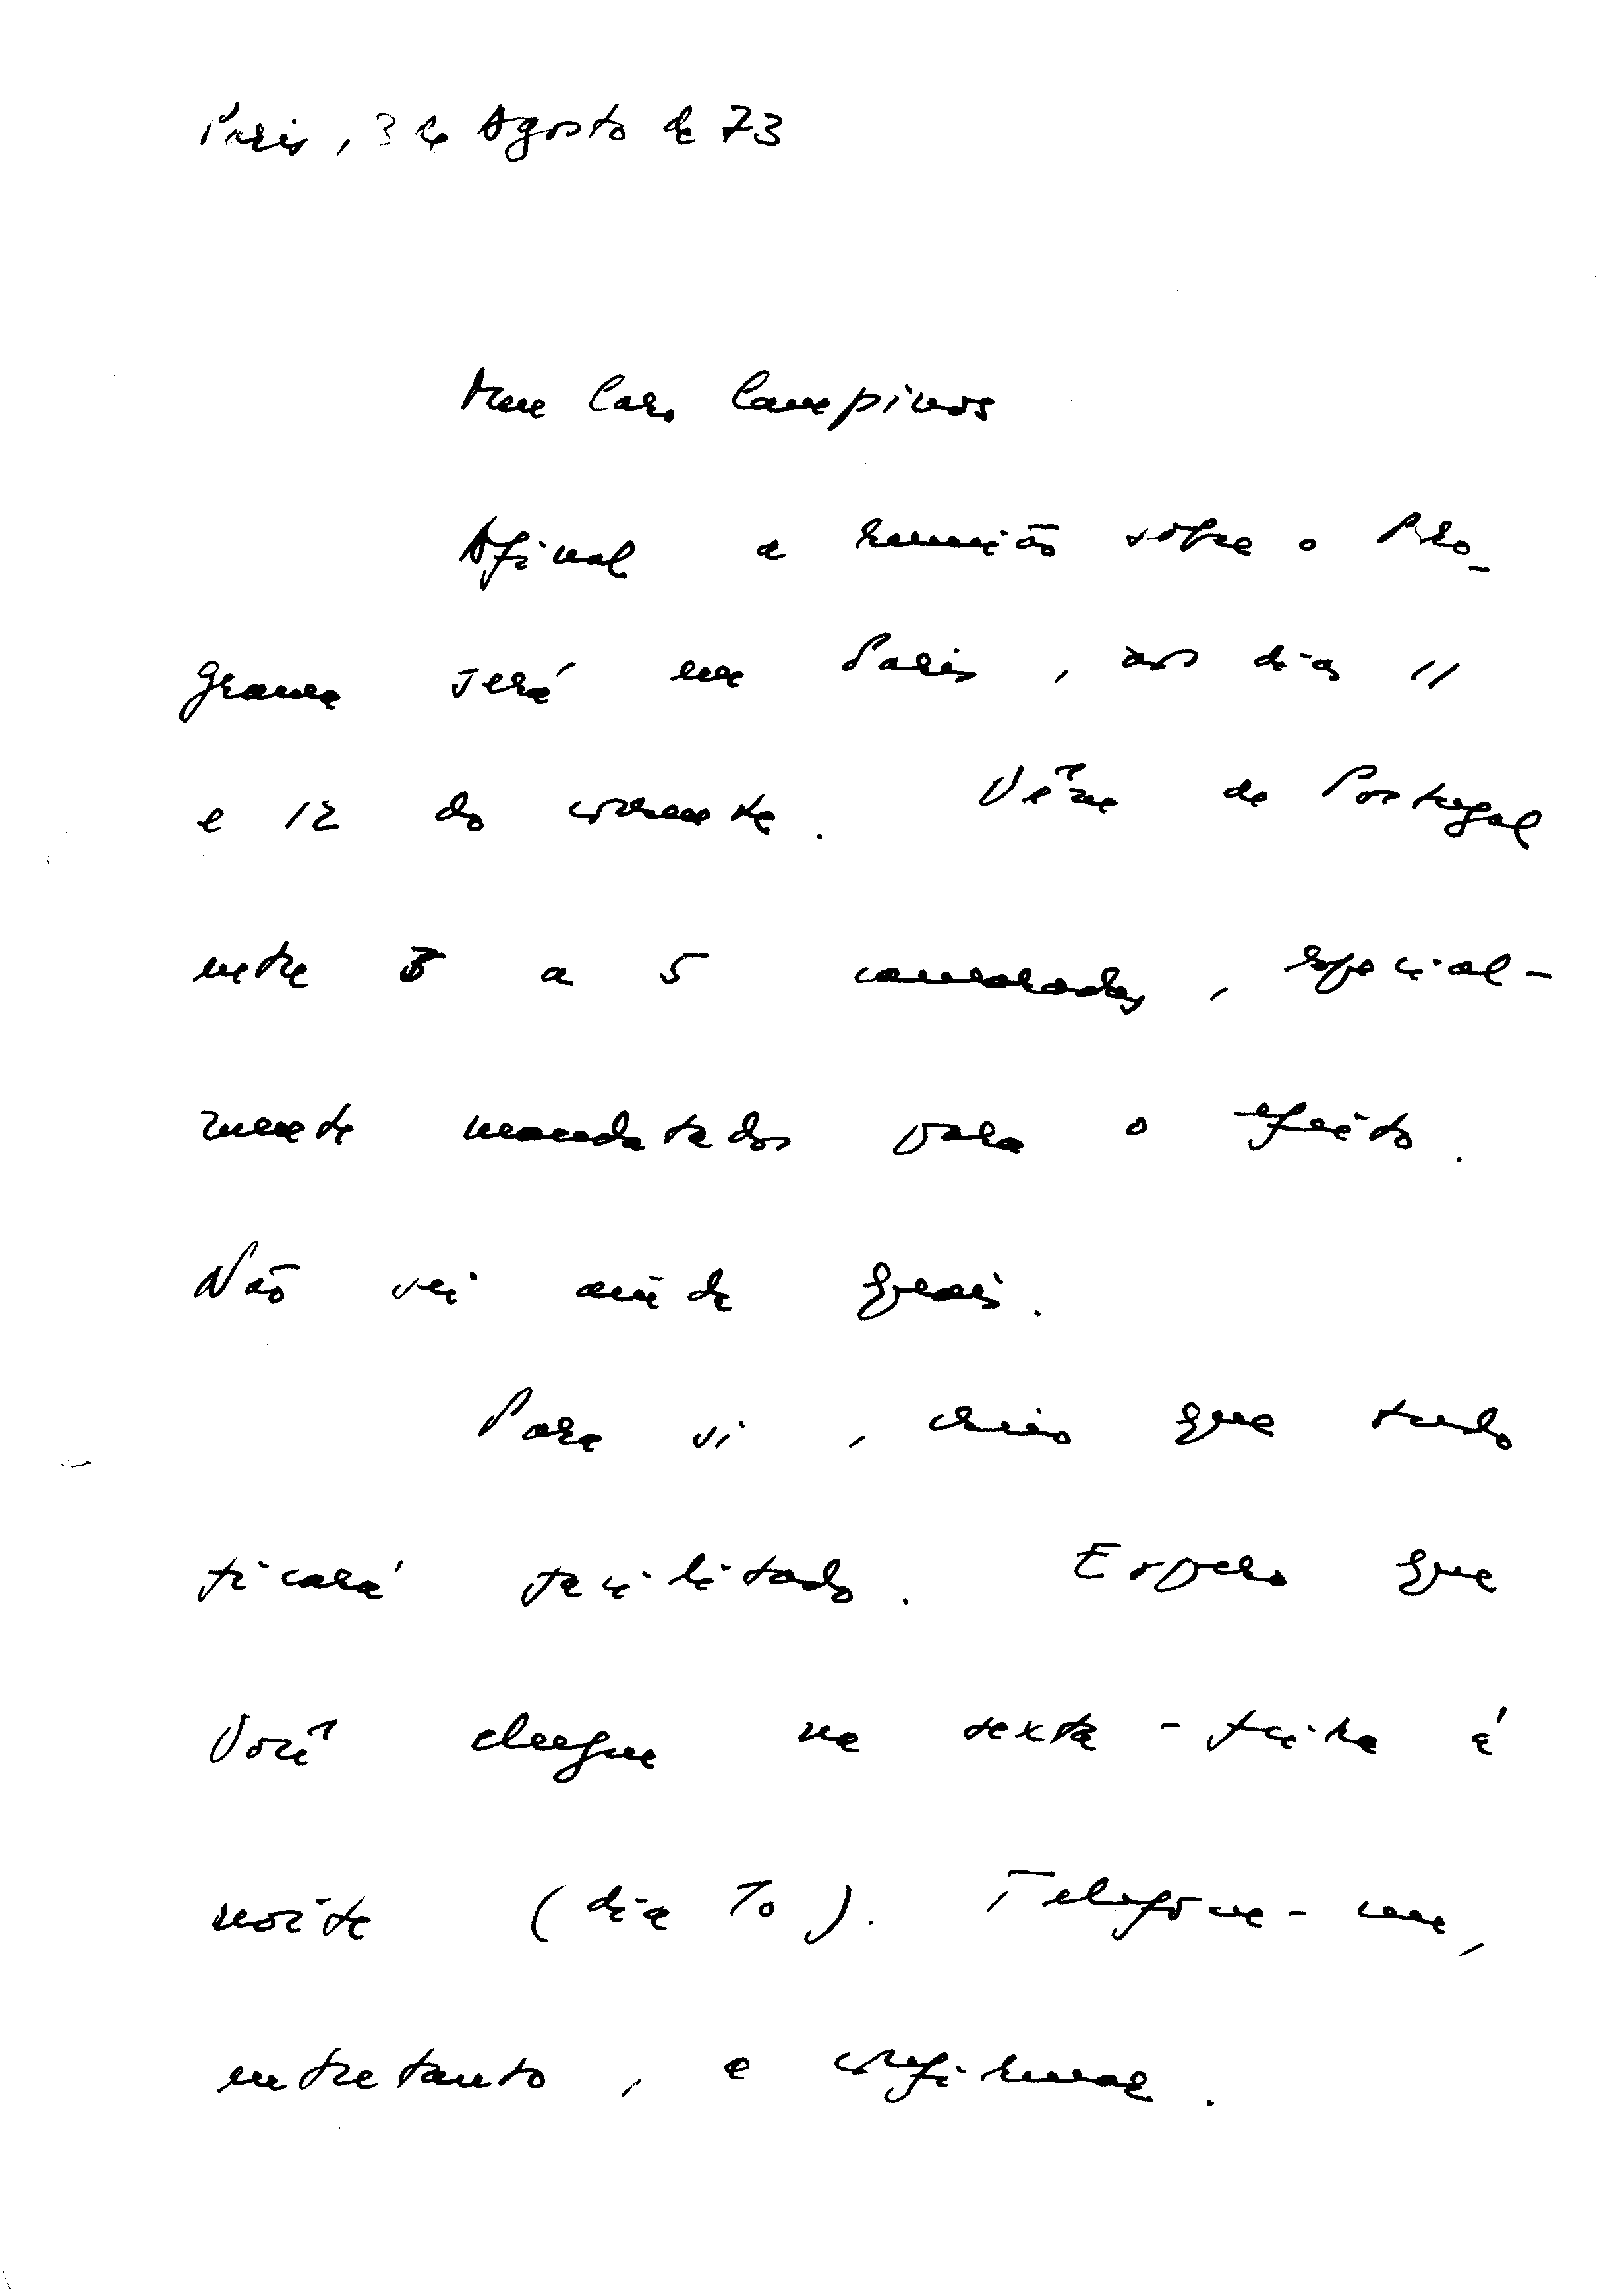 Paris, 3 de Agosto de 73
Meu Caro Campinos
Afinal a reunião sobre o Pro-
grama será em Paris, nos dias 11
e 12 do corrente. Vêm de Portugal
entre 3 a 5 camaradas, especial-
mente mandatados para o efeito.
Não sei ainda quais.
Para si, creio que tudo
ficará facilitado. Espero que
Você chegue na sexta-feira à
noite (dia 10). Telefone-me,
entretanto, a confirmar.